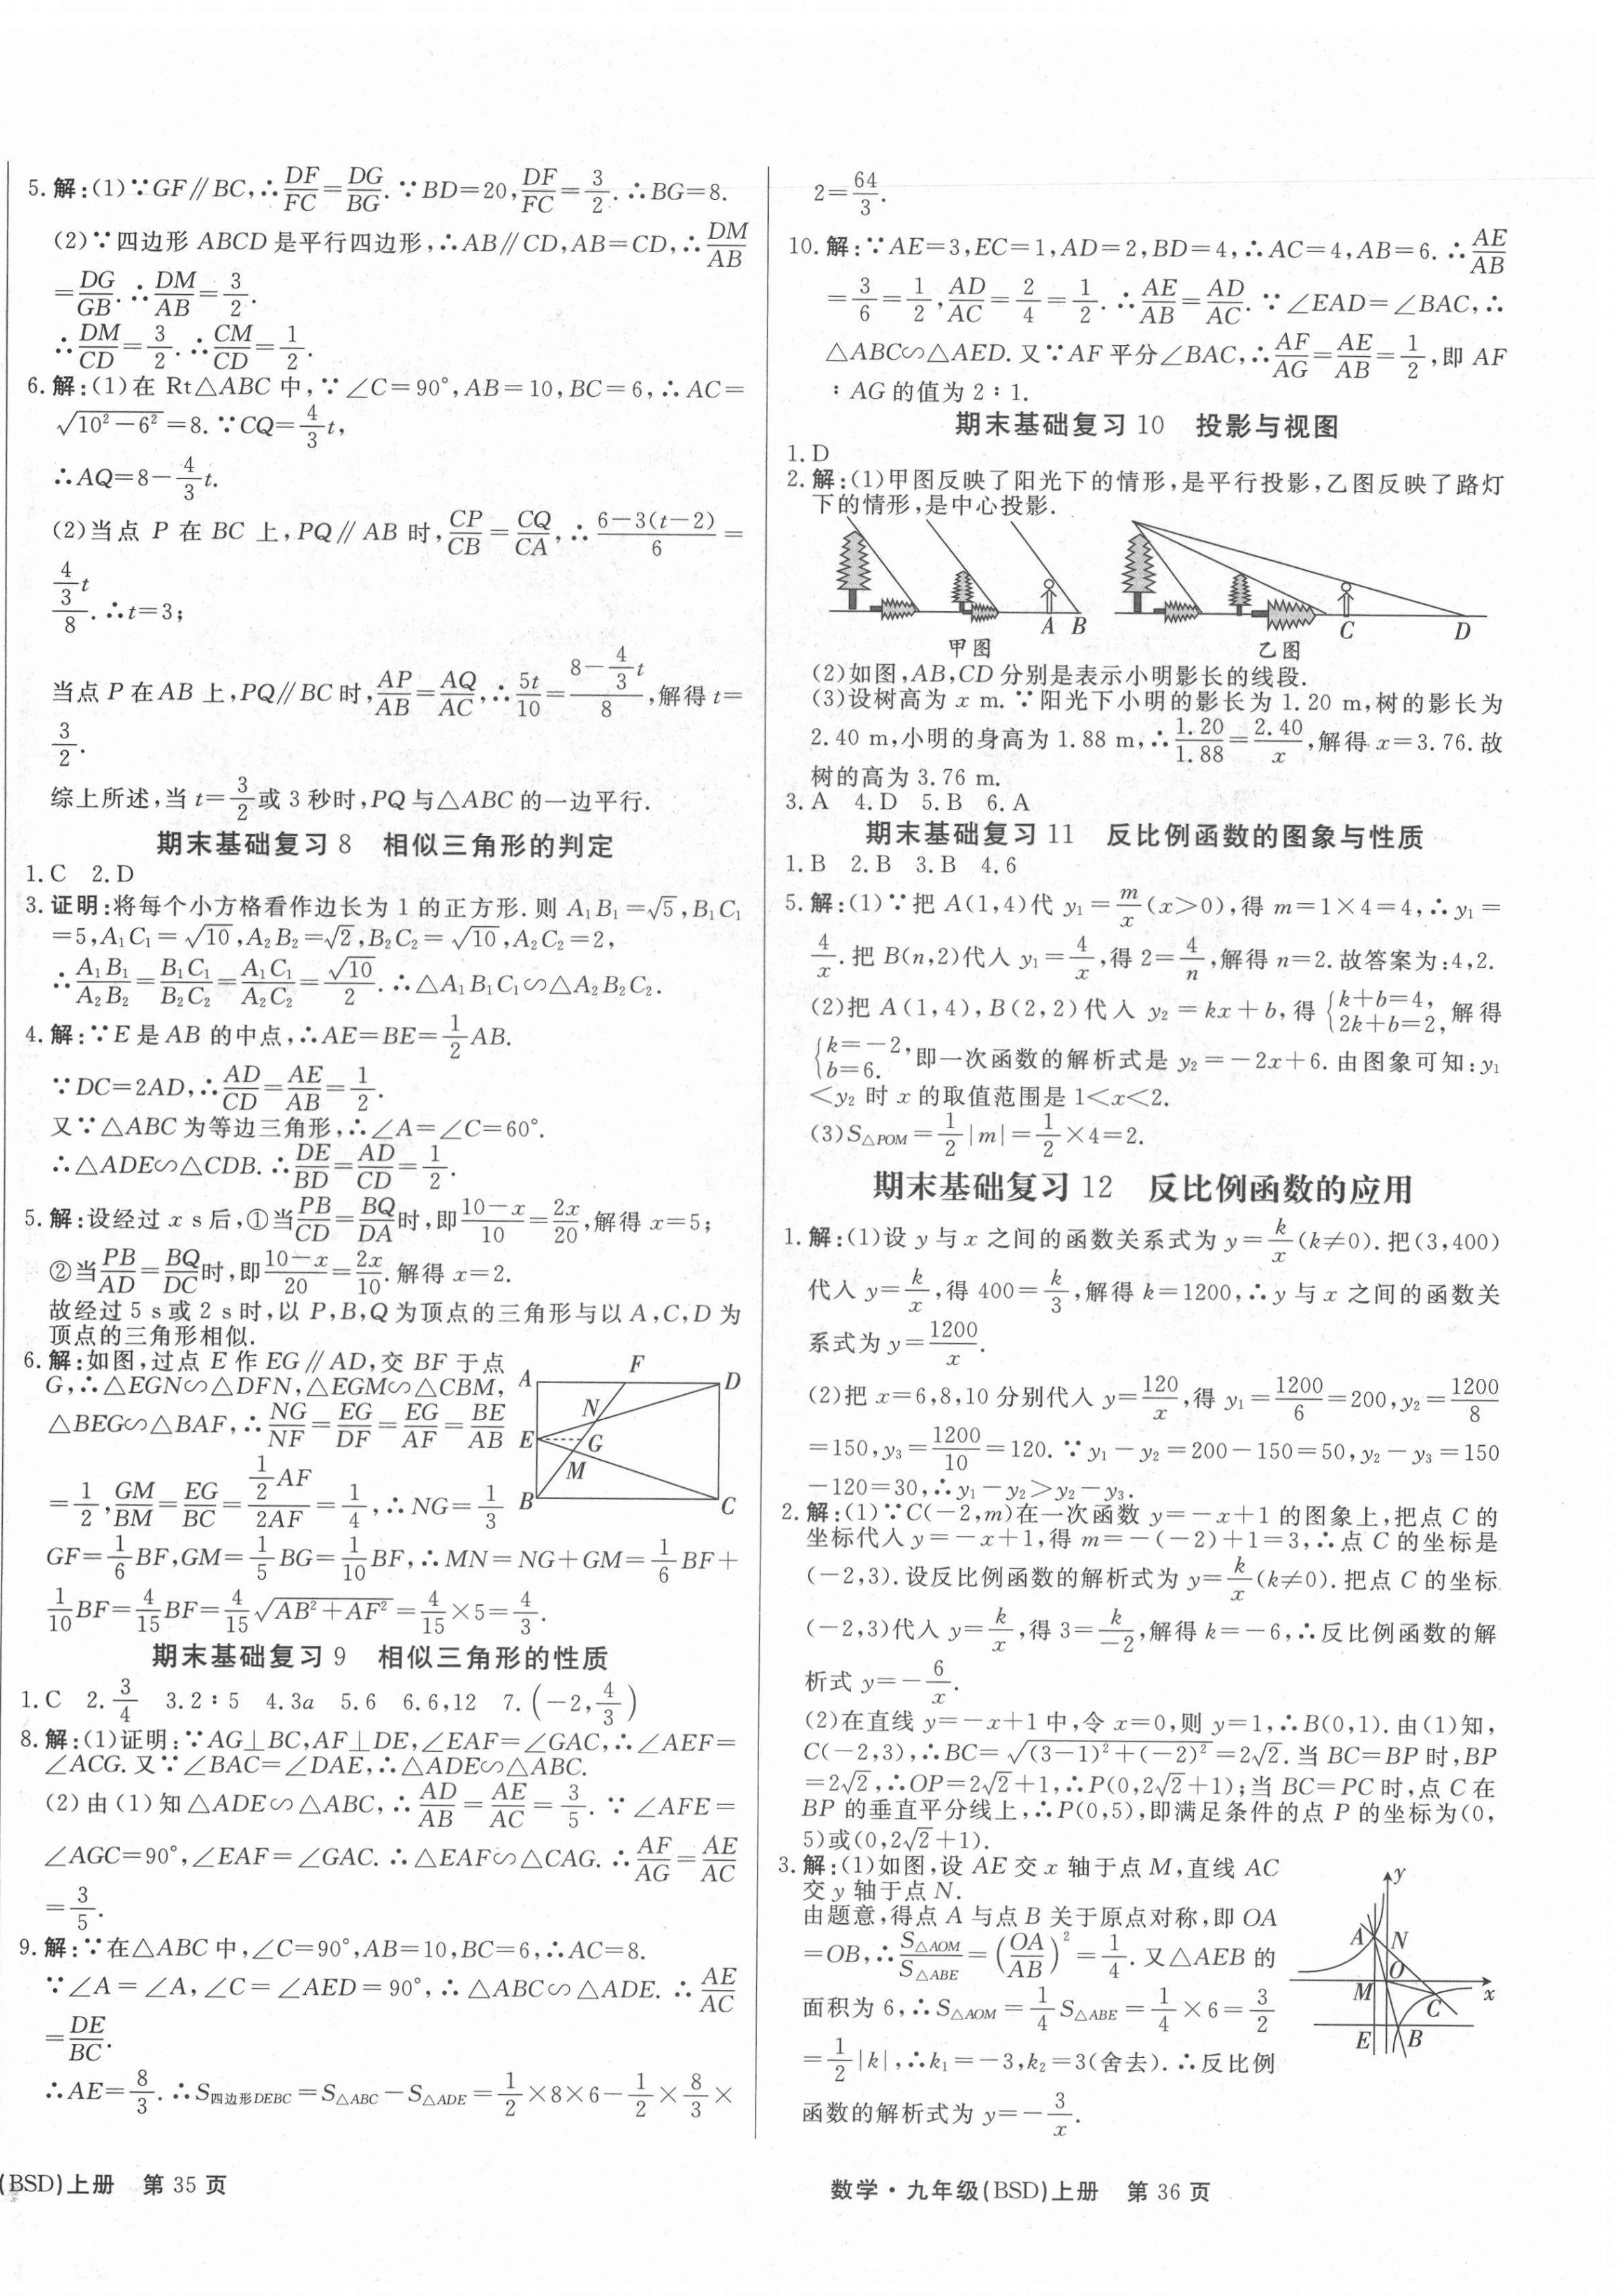 5.解:(1)∵GF∥BC,∴DF/FC=DG/BG.∵BD=20,DF/FC=3/2.∴BG=8.
(2)∵四边形 ABCD 是平行四边形,∴AB∥CD,AB=CD,∴DM/AB
=DG/GB.∴DM/AB=3/2.
∴DM/CD=3/2.∴CM/CD=1/2.
6.解:(1)在 Rt△ABC 中,∵∠C=90°,AB=10,BC=6,∴AC=
√(10²-6²)=8.∵CQ=4/3t,
∴AQ=8-4/3t.
(2)当点 P 在 BC 上,PQ∥AB 时,CP/CB=CQ/CA,∴(6-3(t-2))/6=
(4/3t)/8.∴t=3;
当点 P 在AB 上,PQ∥BC时,AP/AB=AQ/AC,∴5t/10=(8-4/3t)/8,解得 t=
3/2.
综上所述,当 t=3/2或 3 秒时,PQ与△ABC的一边平行.
期末基础复习8 相似三角形的判定
1.C 2.D
3.证明:将每个小方格看作边长为 1 的正方形.则 A₁B₁=√5,B₁C₁
=5,A₁C₁=√10,A₂B₂=√2,B₂C₂=√10,A₂C₂=2,
∴A₁B₁/A₂B₂=B₁C₁/B₂C₂=A₁C₁/A₂C₂=√10/2.∴△A₁B₁C₁∽△A₂B₂C₂.
4.解:∵E 是 AB 的中点,∴AE=BE=1/2AB.
∵DC=2AD,∴AD/CD=AE/AB=1/2.
又∵△ABC 为等边三角形,∴∠A=∠C=60°.
∴△ADE∽△CDB.∴DE/BD=AD/CD=1/2.
5.解:设经过 x s后,①当PB/CD=BQ/DA时,即(10-x)/10=2x/20,解得 x=5;
②当PB/AD=BQ/DC时,即(10-x)/20=2x/10.解得 x=2.
故经过 5 s或 2 s时,以 P,B,Q 为顶点的三角形与以 A,C,D 为
顶点的三角形相似.
6.解:如图,过点 E 作 EG∥AD,交 BF 于点
G,∴△EGN∽△DFN,△EGM∽△CBM,
△BEG∽△BAF,∴NG/NF=EG/DF=EG/AF=BE/AB
=1/2,GM/BM=EG/BC=(1/2AF)/2AF=1/4,∴NG=1/3
GF=1/6BF,GM=1/5BG=1/10BF,∴MN=NG+GM=1/6BF+
1/10BF=4/15BF=4/15√(AB²+AF²)=4/15×5=4/3.
A F D
N
E G
M
B C
期末基础复习9 相似三角形的性质
1.C 2.3/4 3.2∶5 4.3a 5.6 6.6,12 7.(-2,4/3)
8.解:(1)证明:∵AG⊥BC,AF⊥DE,∠EAF=∠GAC,∴∠AEF=
∠ACG.又∵∠BAC=∠DAE,∴△ADE∽△ABC.
(2)由(1)知△ADE∽△ABC,∴AD/AB=AE/AC=3/5.∵∠AFE=
∠AGC=90°,∠EAF=∠GAC.∴△EAF∽△CAG.∴AF/AG=AE/AC
=3/5.
9.解:∵在△ABC 中,∠C=90°,AB=10,BC=6,∴AC=8.
∵∠A=∠A,∠C=∠AED=90°,∴△ABC∽△ADE.∴AE/AC
=DE/BC.
∴AE=8/3.∴S四边形DEBC=S△ABC-S△ADE=1/2×8×6-1/2×8/3×
(BSD)上册 第 35 页
2=64/3.
10.解:∵AE=3,EC=1,AD=2,BD=4,∴AC=4,AB=6.∴AE/AB
=3/6=1/2,AD/AC=2/4=1/2.∴AE/AB=AD/AC.∵∠EAD=∠BAC,∴
△ABC∽△AED.又∵AF 平分∠BAC,∴AF/AG=AE/AB=1/2,即 AF
∶AG 的值为 2∶1.
期末基础复习10 投影与视图
1.D
2.解:(1)甲图反映了阳光下的情形,是平行投影,乙图反映了路灯
下的情形,是中心投影.
A B
甲图
C D
乙图
(2)如图,AB,CD 分别是表示小明影长的线段.
(3)设树高为 x m.∵阳光下小明的影长为 1.20 m,树的影长为
2.40 m,小明的身高为 1.88 m,∴1.20/1.88=2.40/x,解得 x=3.76.故
树的高为 3.76 m.
3.A 4.D 5.B 6.A
期末基础复习11 反比例函数的图象与性质
1.B 2.B 3.B 4.6
5.解:(1)∵把 A(1,4)代 y₁=m/x(x>0),得 m=1×4=4,∴y₁=
4/x.把 B(n,2)代入 y₁=4/x,得 2=4/n,解得 n=2.故答案为:4,2.
(2)把 A(1,4),B(2,2)代入 y₂=kx+b,得{k+b=4, 2k+b=2,解得
{k=-2, b=6.即一次函数的解析式是 y₂=-2x+6.由图象可知:y₁
<y₂ 时 x 的取值范围是 1<x<2.
(3)S△POM=1/2|m|=1/2×4=2.
期末基础复习12 反比例函数的应用
1.解:(1)设 y 与 x 之间的函数关系式为 y=k/x(k≠0).把(3,400)
代入 y=k/x,得 400=k/3,解得 k=1200,∴y 与 x 之间的函数关
系式为 y=1200/x.
(2)把 x=6,8,10 分别代入 y=120/x,得 y₁=1200/6=200,y₂=1200/8
=150,y₃=1200/10=120.∵y₁-y₂=200-150=50,y₂-y₃=150
-120=30,∴y₁-y₂>y₂-y₃.
2.解:(1)∵C(-2,m)在一次函数 y=-x+1 的图象上,把点 C 的
坐标代入 y=-x+1,得 m=-(-2)+1=3,∴点 C 的坐标是
(-2,3).设反比例函数的解析式为 y=k/x(k≠0).把点 C 的坐标
(-2,3)代入 y=k/x,得 3=k/-2,解得 k=-6,∴反比例函数的解
析式 y=-6/x.
(2)在直线 y=-x+1 中,令 x=0,则 y=1,∴B(0,1).由(1)知,
C(-2,3),∴BC=√((3-1)²+(-2)²)=2√2.当 BC=BP 时,BP
=2√2,∴OP=2√2+1,∴P(0,2√2+1);当 BC=PC 时,点 C 在
BP 的垂直平分线上,∴P(0,5),即满足条件的点 P 的坐标为(0,
5)或(0,2√2+1).
3.解:(1)如图,设 AE 交 x 轴于点 M,直线 AC
交 y 轴于点 N.
由题意,得点 A 与点 B 关于原点对称,即 OA
=OB,∴S△AOM/S△ABE=(OA/AB)²=1/4.又△AEB 的
面积为 6,∴S△AOM=1/4S△ABE=1/4×6=3/2
=1/2|k|,∴k₁=-3,k₂=3(舍去).∴反比例
函数的解析式为 y=-3/x.
y
A N
O
M C x
E B
数学·九年级(BSD)上册 第 36 页